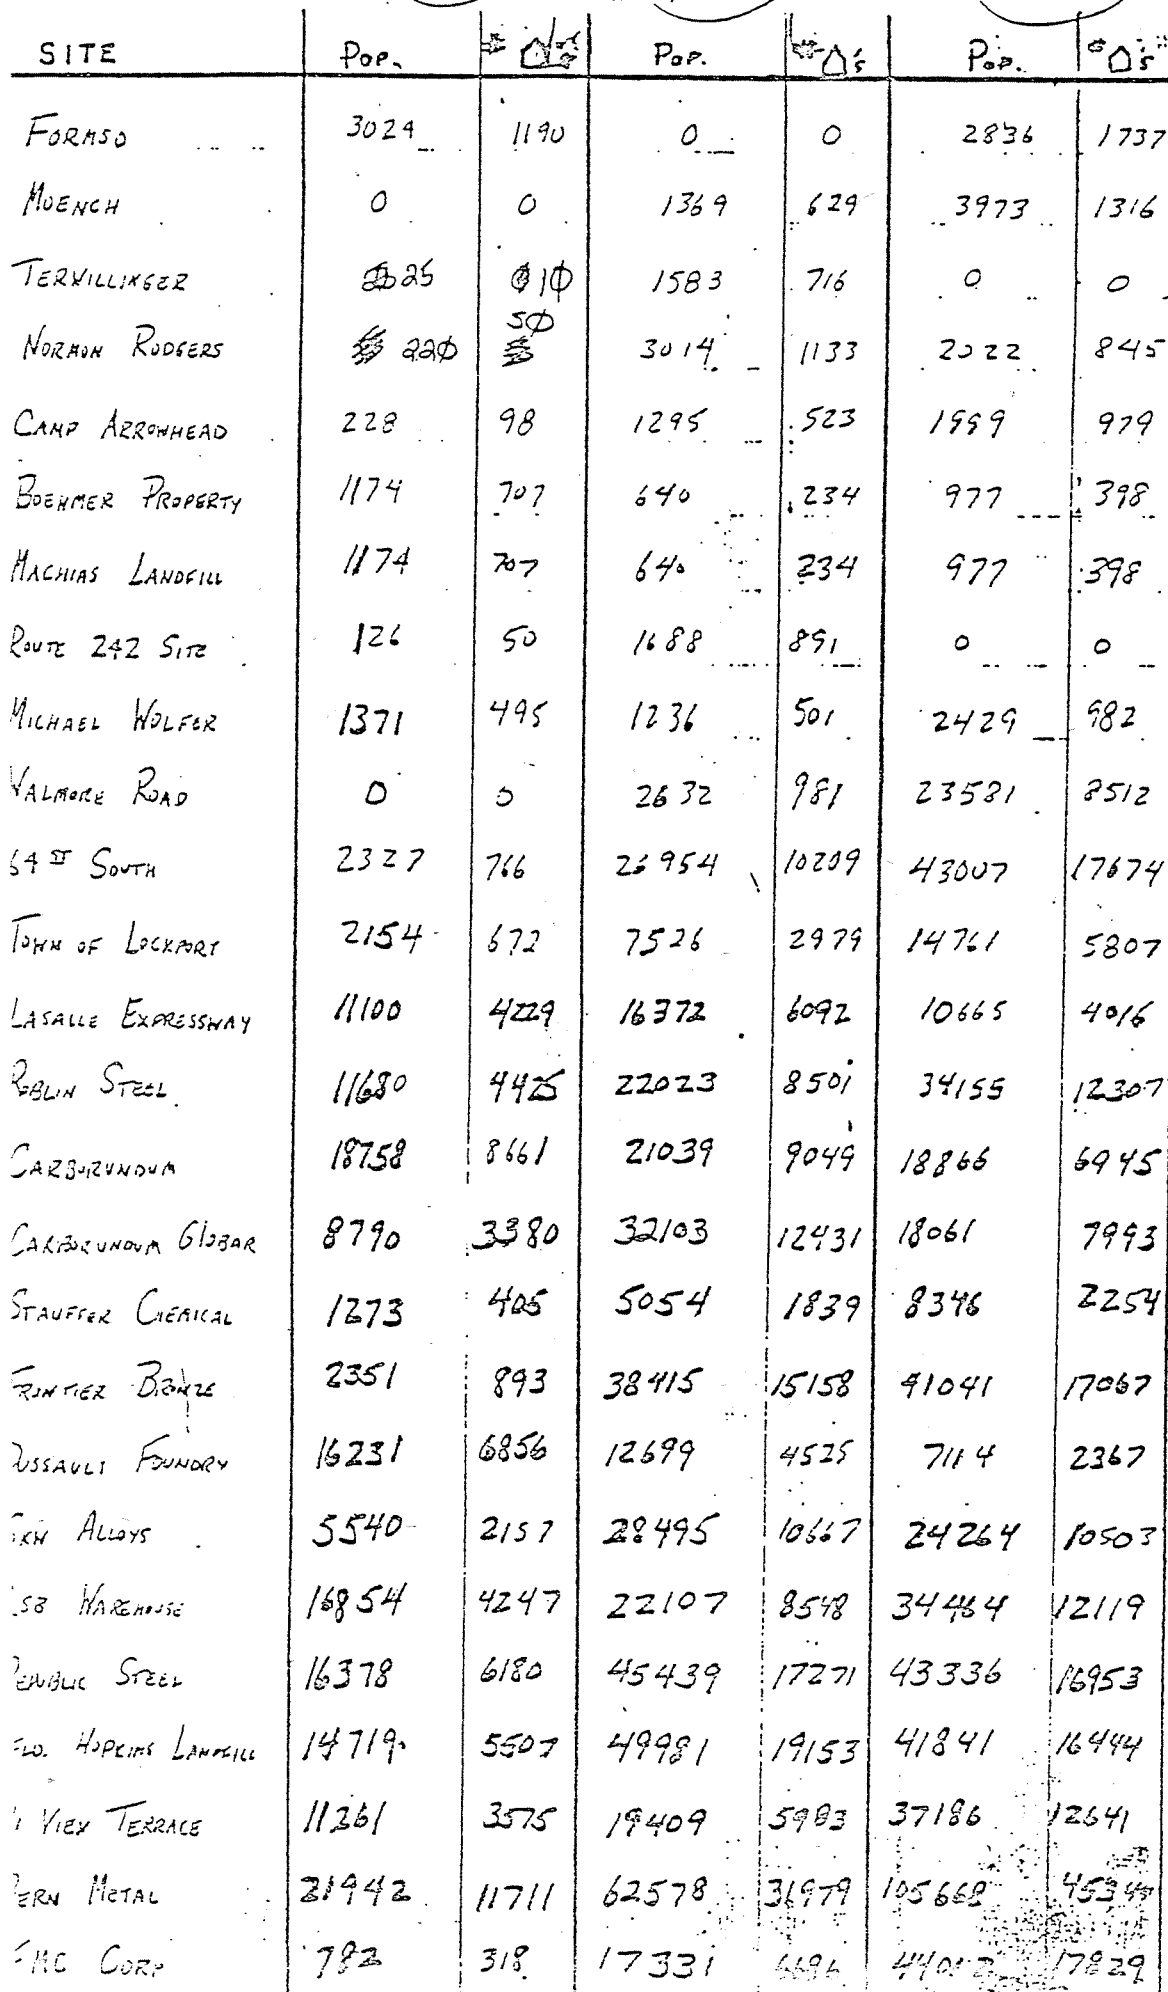 SITE Pop. # ⌂'s Pop. # ⌂'s Pop. # ⌂'s
FORMSO 3029 1190 0 0 2836 1737
MUENCH 0 0 1369 629 3973 1316
TERWILLINGER 25 10 1583 716 0 0
NORMON RODGERS 220 50 3014 1133 2022 845
CAMP ARROWHEAD 228 98 1295 523 1999 979
BOEHMER PROPERTY 1174 707 640 234 977 398
MACHIAS LANDFILL 1174 707 640 234 977 398
ROUTE 242 SITE 126 50 1688 891 0 0
MICHAEL WOLFER 1371 495 1236 501 2429 982
WALMORE ROAD 0 0 2632 981 23581 8512
64TH SOUTH 2327 766 26954 10209 43007 17674
TOWN OF LOCKPORT 2154 672 7526 2979 14761 5807
LASALLE EXPRESSWAY 11100 4229 16372 6092 10665 4016
ROBLIN STEEL 11680 4425 22023 8501 34155 12307
CARBORUNDUM 18758 8661 21039 9049 18866 6945
CARBORUNDUM GLOBAR 8790 3380 32103 12431 18061 7993
STAUFFER CHEMICAL 1273 405 5054 1839 8346 2254
FRONTIER BRONZE 2351 893 38415 15158 41041 17067
DUSSAULT FOUNDRY 16231 6856 12699 4525 7114 2367
ALLOYS 5540 2157 28495 10667 24264 10503
58 WAREHOUSE 16854 4247 22107 8548 34464 12119
REPUBLIC STEEL 16378 6180 45439 17271 43336 16953
HOPKINS LANDFILL 14719 5507 49981 19153 41841 16444
VIEW TERRACE 11261 3575 19409 5983 37186 12641
ERN METAL 21942 11711 62578 31979 105668
FMC CORP 782 318 17331 6696 17829